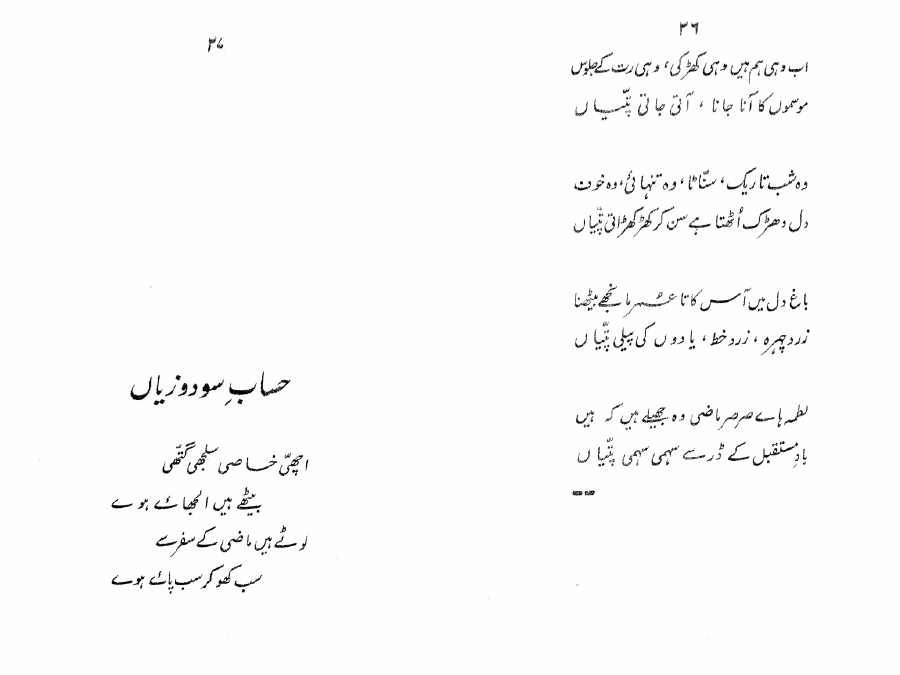 ۳۶
اب وہی ہم ہیں وہی کھڑکی، وہی رت کے جلوس
موسموں کا آنا جانا، آتی جاتی پتّیاں
وہ شب تاریک، سنّاٹا، وہ تنہائی، وہ خوف
دل دھڑک اُٹھتا ہے سن کر کھڑکھڑاتی پتّیاں
باغ دل میں آس کا تا عمر مانجھے بیٹھنا
زرد چہرہ، زرد خط، یادوں کی پیلی پتّیاں
لطمہ ہاے صرصر ماضی وہ جھیلے ہیں کہ ہیں
بادِ مستقبل کے ڈر سے سہمی سہمی پتّیاں
۳۷
حسابِ سود و زیاں
اچھّی خاصی سلجھی گتھّی
بیٹھے ہیں الجھائے ہوے
لوٹے ہیں ماضی کے سفر سے
سب کھو کر سب پائے ہوے